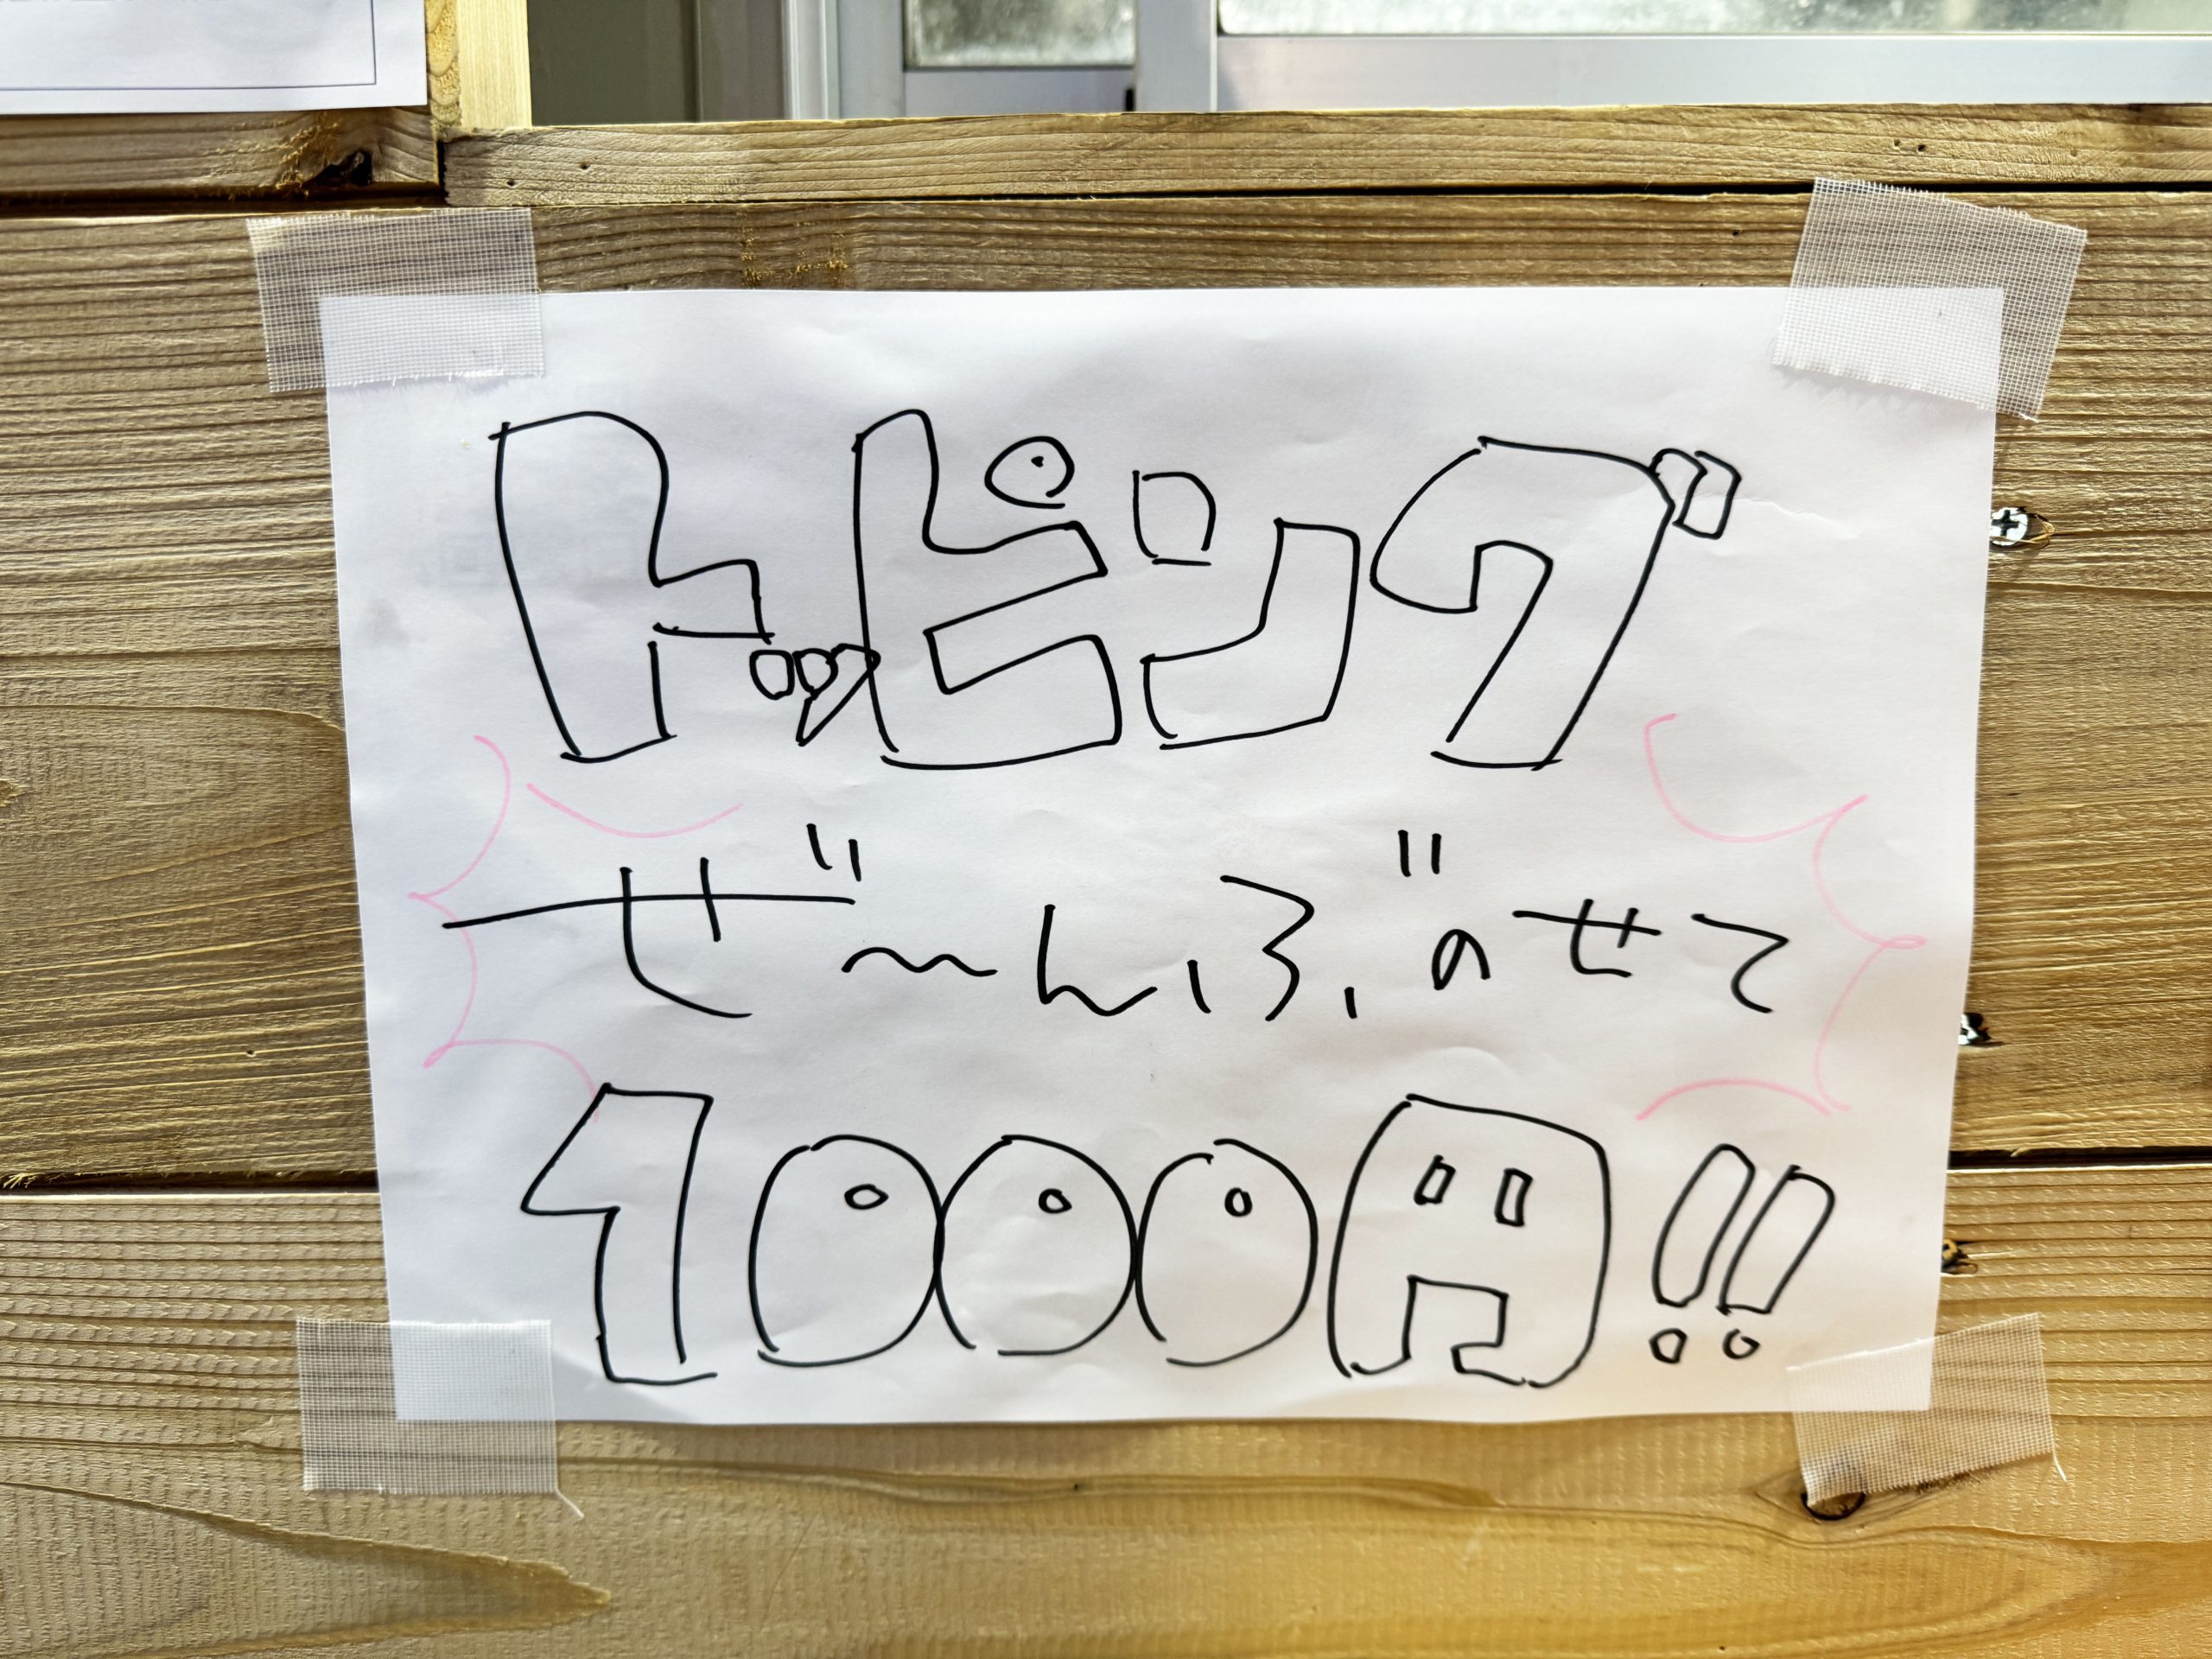 トッピング
ぜ〜んぶのせて
1000円!!